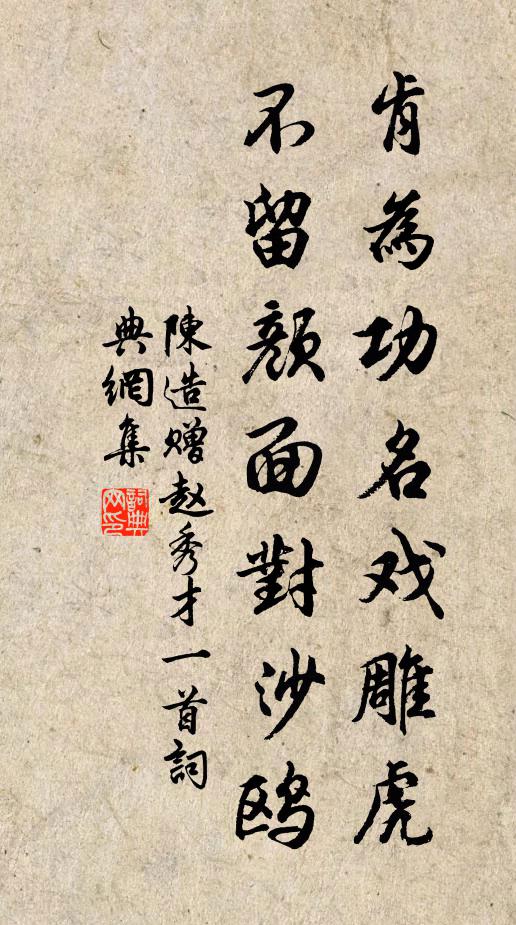 肯為功名戏雕虎
不留顏面對沙鸥
陳造赠赵秀才一首詞
典網集
詞典网印